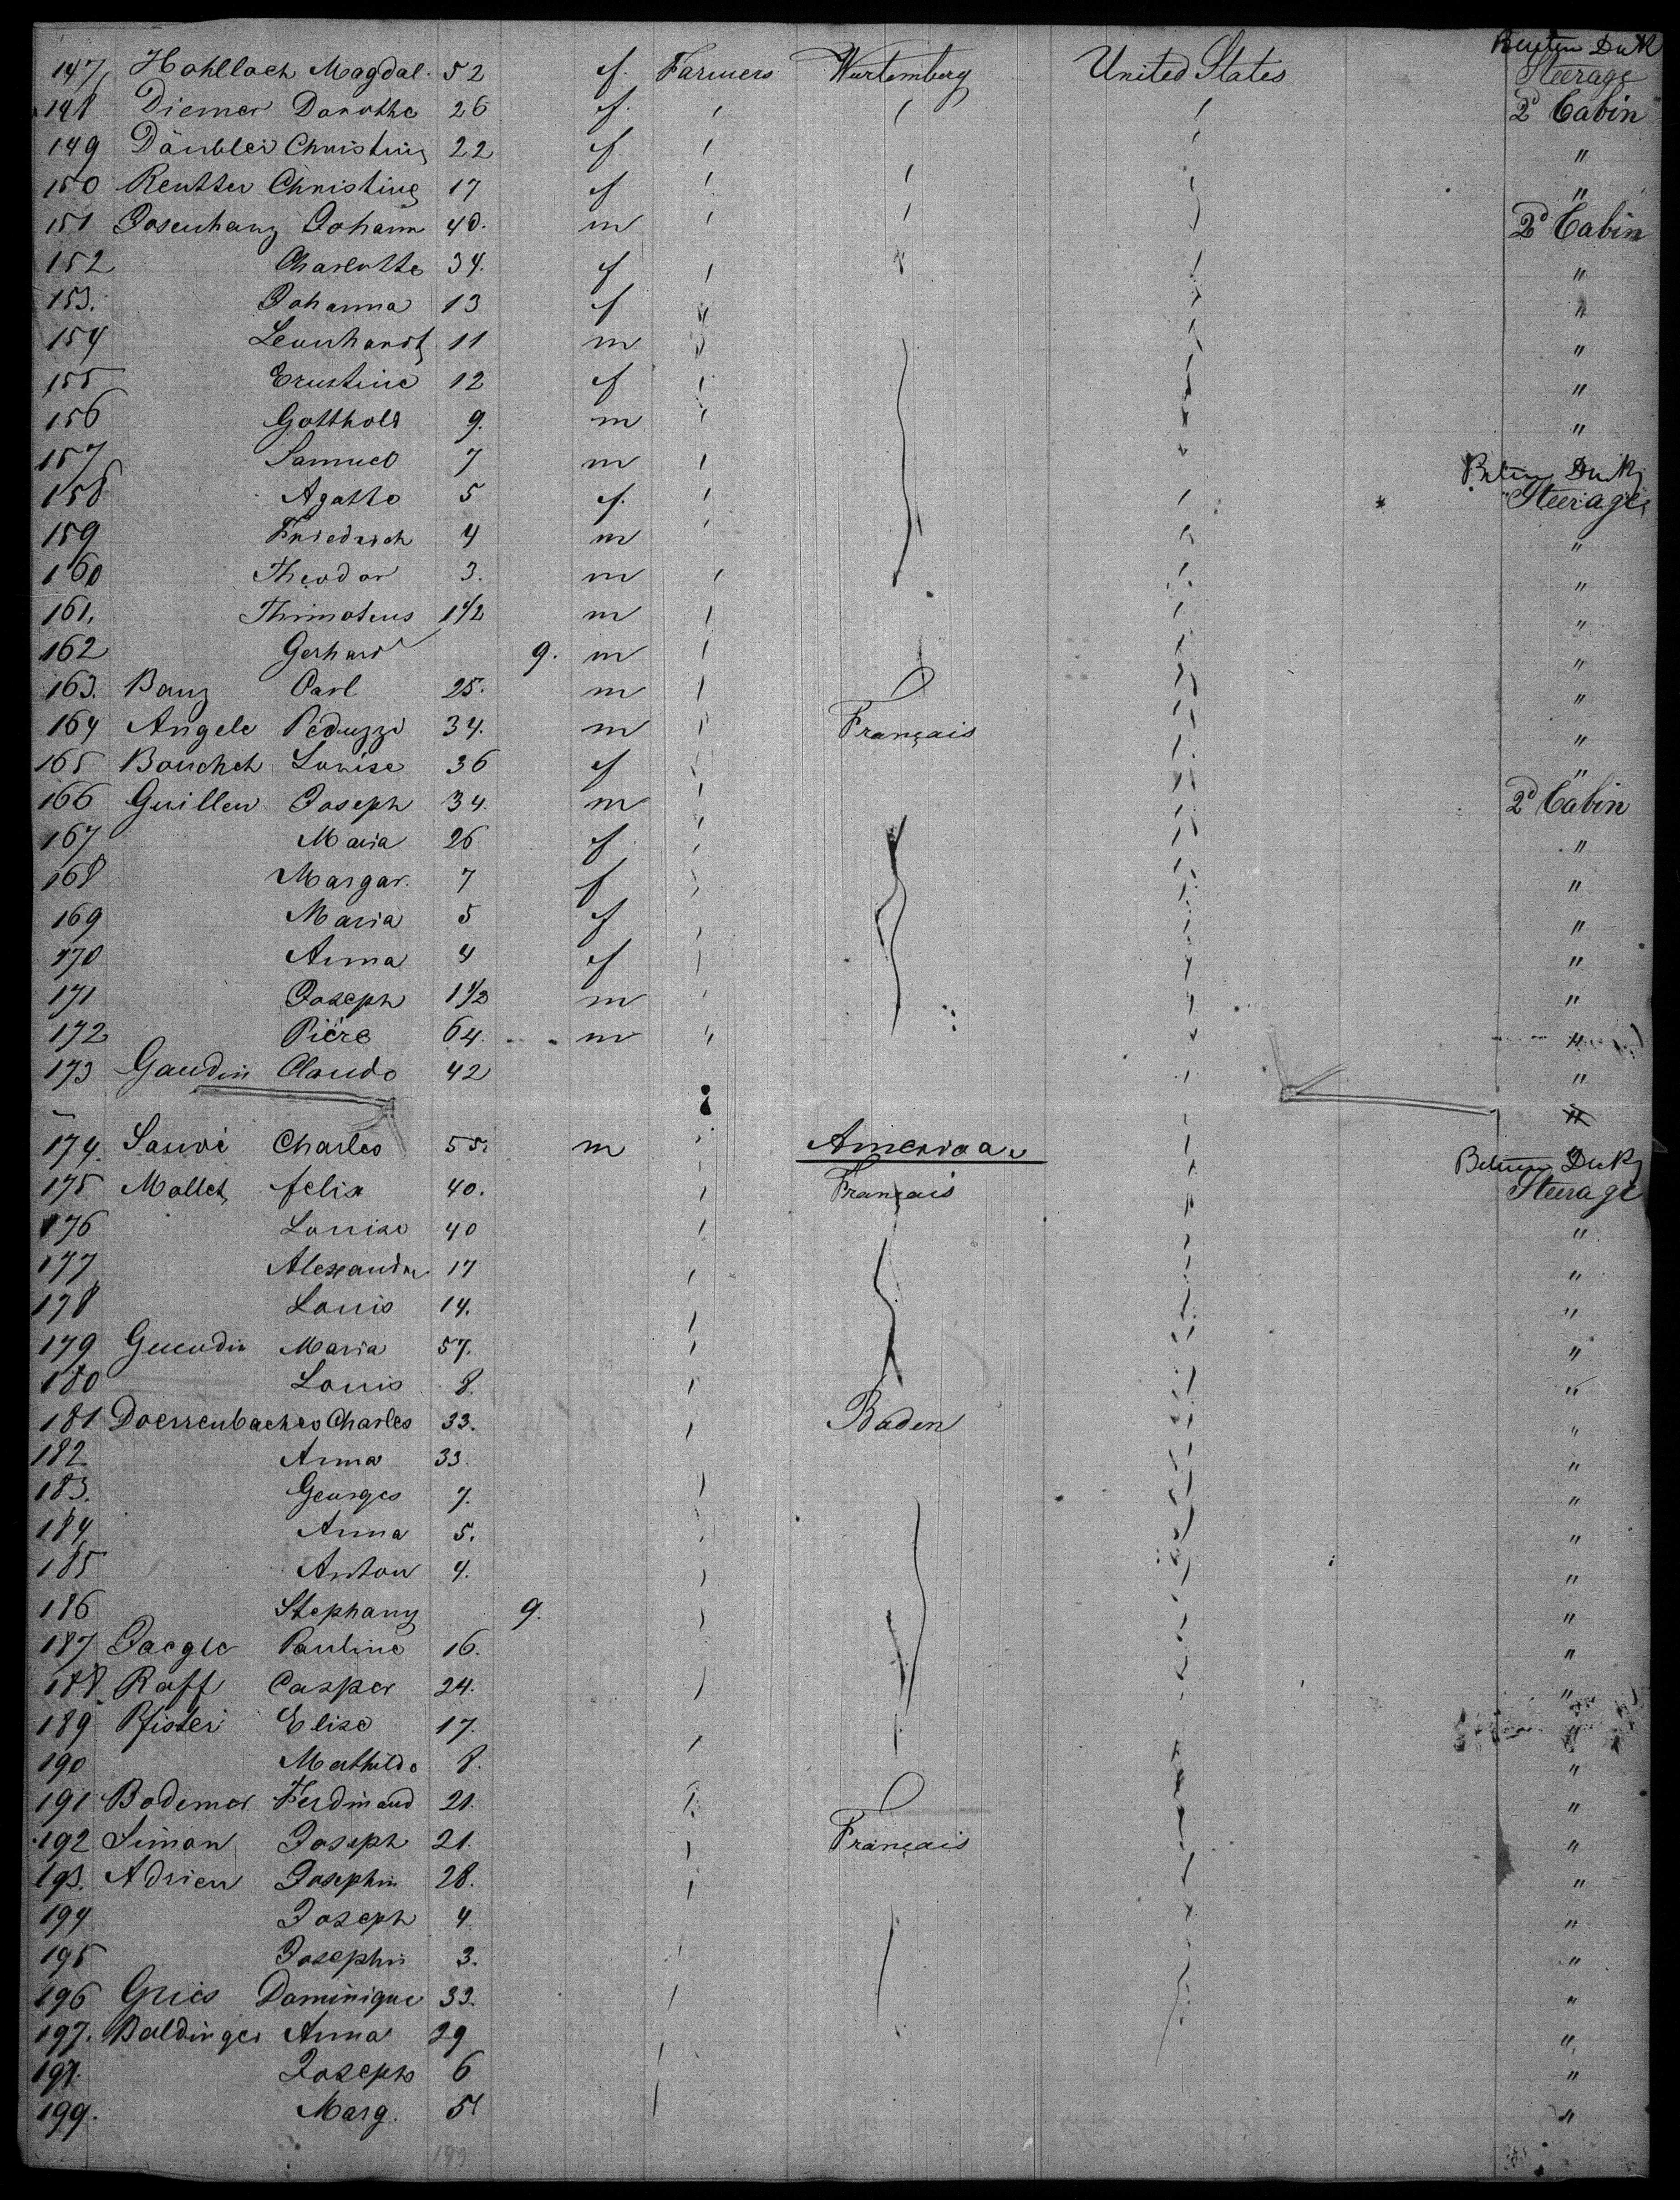 147 Hohlloch Magdal. 52 f. Farmers Wurtemberg United States Steerage
148 Diemer Dorothe 26 f. 2d Cabin
149 Däubler Christine 22 f "
150 Reutter Christine 17 f "
151 Josenhanz Johann 40. m 2d Cabin
152 Charlotte 34. f "
153. Johanna 13 f "
154 Leonhardt 11 m "
155 Ernstine 12 f "
156 Gotthold 9. m "
157 Samuel 7 m
158 Agathe 5 f. Steerage
159 Friedrich 4 m "
160 Theodor 3. m "
161. Thimoteus 1 1/2 m "
162 Gerhard 9. m "
163. Banz Carl 25. m "
164 Angele Peduzzi 34. m Français "
165 Bouchet Louise 36 f "
166 Guillen Joseph 34. m 2d Cabin
167 Maria 26 f "
168 Margar. 7 f "
169 Maria 5 f "
170 Anna 4 f "
171 Joseph 1 1/2 m "
172 Piére 64. m "
173 Gaudin Claude 42 "
174. Charles 55. m
175 Mollet felix 40. Français Steerage
176 Louise 40 "
177 Alexandre 17 "
178 Louis 14. "
179 Maria 57. "
180 Louis 8. "
181 Doerrenbacher Charles 33. Baden "
182 Anna 33. "
183. Georges 7. "
184 Anna 5. "
185 Anton 4. "
186 Stephany 9. "
187 Jaegle Pauline 16. "
188. Raff Casper 24. "
189 Pfister Elise 17. "
190 Mathilde 8. "
191 Bodemer Ferdinand 21. "
192 Simon Joseph 21. Français "
193. Adrien Josephin 28. "
194 Joseph 4. "
195 Josephin 3. "
196 Gries Dominique 33. "
197. Baldinger Anna 29 "
197. Joseph 6 "
199. Marg. 5 "
199